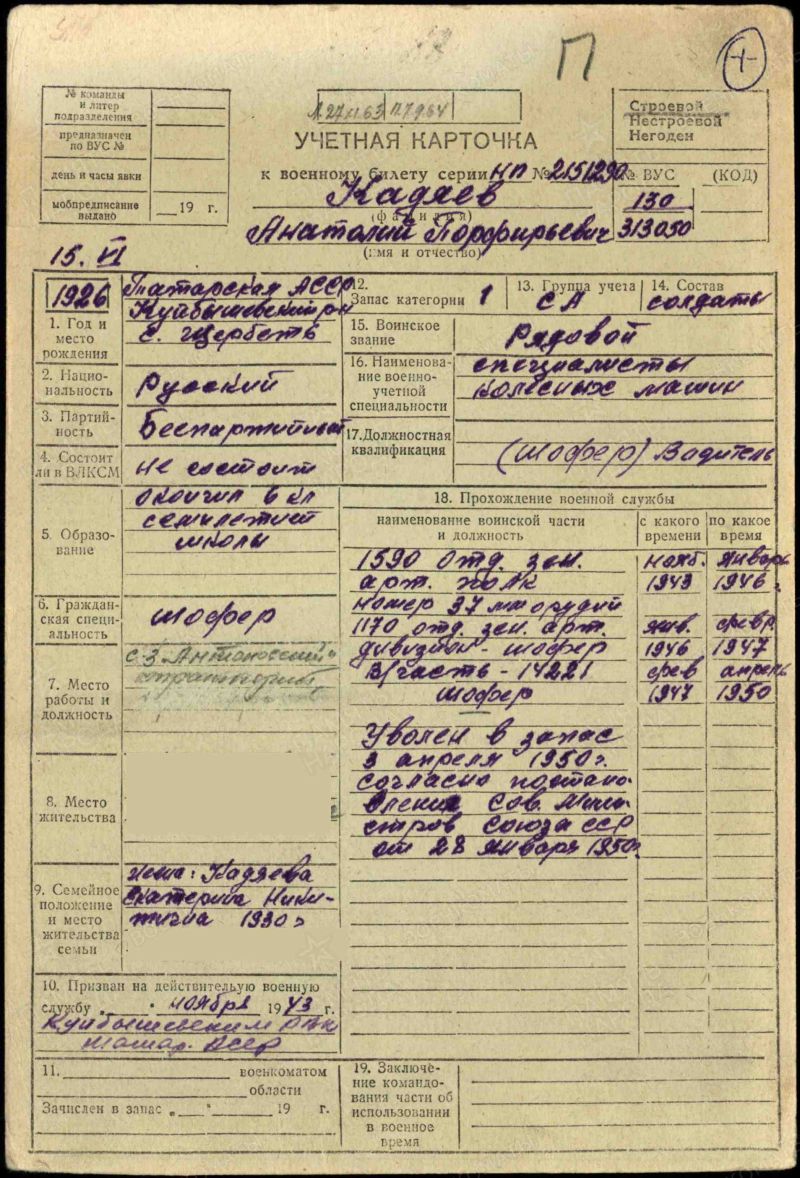 П
+
№ команды
и литер
подразделения
предназначен
по ВУС №
день и часы явки
мобпредписание
выдано
19 г.
Л 27 11.63 П 7964
УЧЕТНАЯ КАРТОЧКА
к военному билету серии НП № 2151290
Кадяев
(фамилия)
Анатолий Порфирьевич
(имя и отчество)
Строевой
Нестроевой
Негоден
№ ВУС (КОД)
130
313050
15. VI
1926
1. Год и
место
рождения
Татарская АССР
Куйбышевский рн
с. Щербеть
2. Нацио-
нальность
Русский
3. Партий-
ность
Беспартийный
4. Состоит
ли в ВЛКСМ
не состоит
5. Образо-
вание
окончил 6 кл
семилетней
школы
6. Граждан-
ская специ-
альность
шофер
7. Место
работы и
должность
с-з
8. Место
жительства
9. Семейное
положение
и место
жительства
семьи
жена: Кадяева
Екатерина Ники-
тична 1930 г
10. Призван на действительную военную
службу „ " ноября 1943 г.
Куйбышевским РВК
Татар. АССР
11. военкоматом
области
Зачислен в запас „ " 19 г.
12.
Запас категории 1
13. Группа учета
СА
14. Состав
солдаты
15. Воинское
звание
Рядовой
16. Наименова-
ние военно-
учетной
специальности
специалисты
колесных машин
17. Должностная
квалификация
(шофер) Водитель
18. Прохождение военной службы
наименование воинской части
и должность
с какого
времени
по какое
время
1590 отд. зен. нояб. январь
арт. полк 1943 1946 г
номер 37 мм орудий
1170 отд. зен. арт. янв. февр.
дивизион - шофер 1946 1947
В/часть - 14221 фев апрель
шофер 1947 1950
Уволен в запас
3 апреля 1950 г.
согласно постано-
вления Сов. Мини-
стров Союза ССР
от 28 января 1950 г.
19. Заключе-
ние командо-
вания части об
использовании
в военное
время